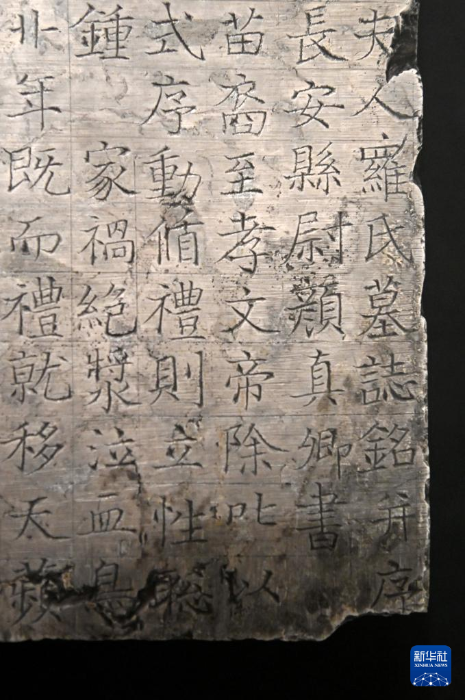 夫人羅氏墓誌銘并序
長安縣尉顏真卿書
苗裔至孝文帝除叱以
式序動偱禮則立性聡
鍾家禍絕漿泣血
卝年既而禮就移天蘋
新华社
XINHUA NEWS